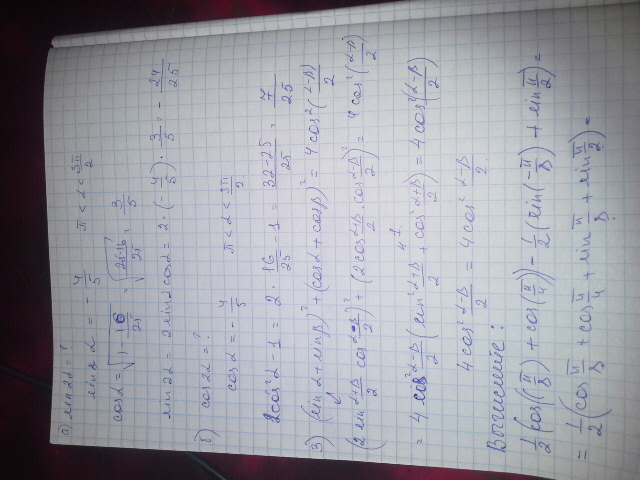 а) sin2α = ?
sin α = - 4/5   π < α < 3π/2
cosα = √(1 - 16/25) = √((25-16)/25) = 3/5
sin 2α = 2 sinα cosα = 2 · (- 4/5) · 3/5 = - 24/25
б) cos2α = ?
cosα = - 4/5   π < α < 3π/2
2cos²α - 1 = 2 · 16/25 - 1 = (32-25)/25 = 7/25
3) (sinα + sinβ)² + (cosα + cosβ)² = 4cos²((α-β)/2)
(2 sin (α+β)/2 cos (α-β)/2)² + (2cos (α+β)/2 · cos (α-β)/2)² = 4cos²((α-β)/2)
= 4 cos² (α-β)/2 (sin² (α+β)/2 + cos² (α+β)/2) = 4cos²((α-β)/2)
4cos² (α-β)/2 = 4cos² (α-β)/2
Вычислите:
1/2 (cos(π/8) + cos(π/4)) - 1/2 (sin(-π/8) + sin π/2) =
= 1/2 (cos π/8 + cos π/4 + sin π/8 + sin π/2) =